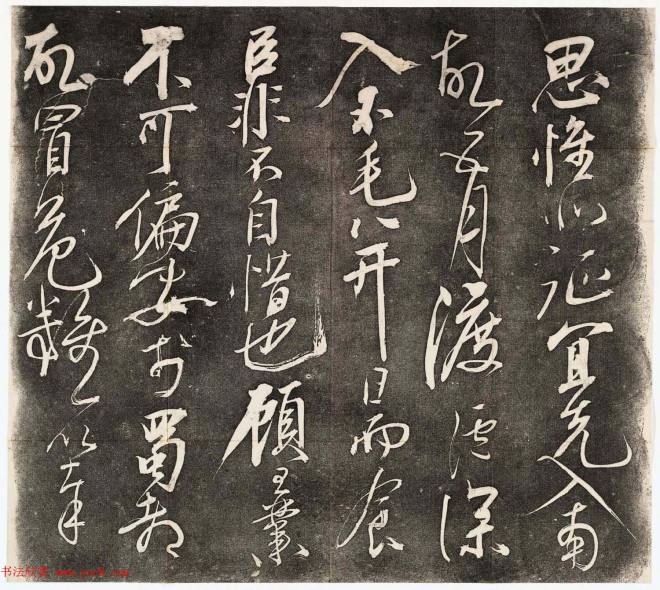 思惟北征宜先入南
故五月渡瀘深
入不毛并日而食
臣非不自惜也顧王業
不可偏安於蜀都
故冒危難以奉
书法欣赏